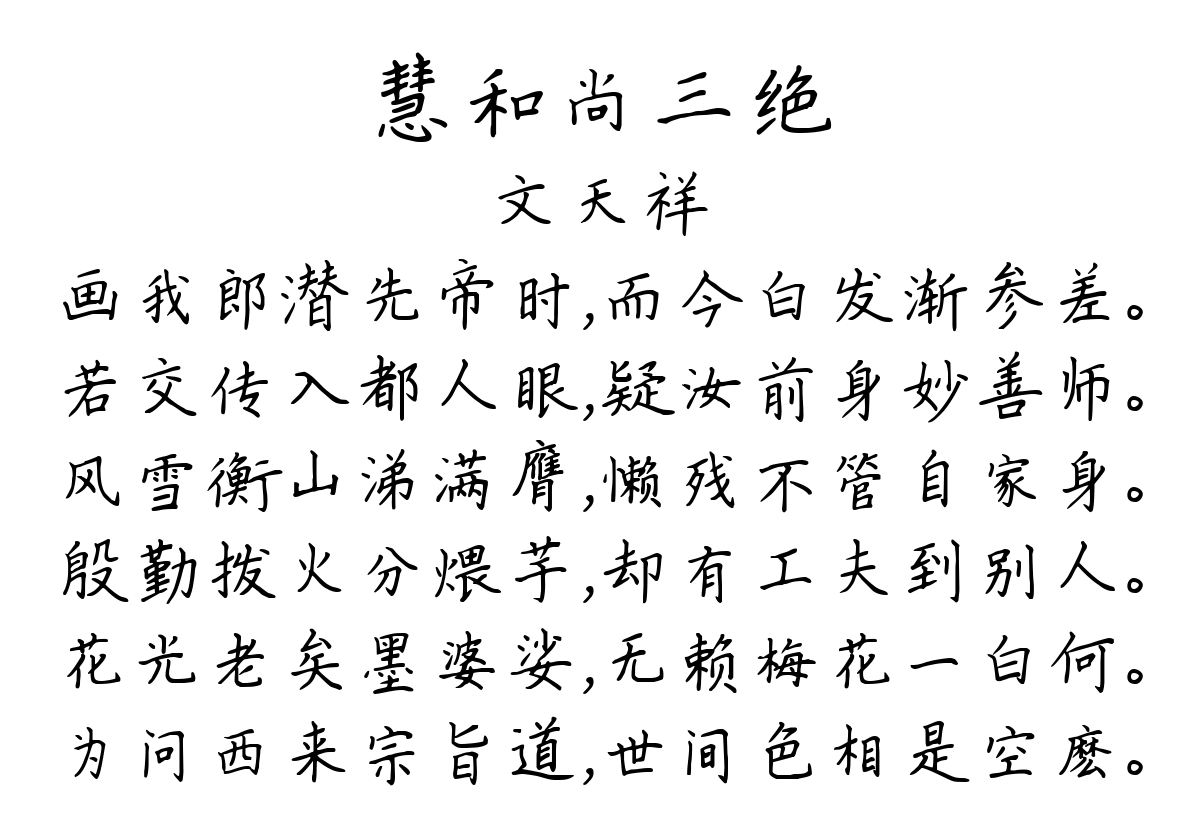 慧和尚三绝
文天祥
画我郎潜先帝时,而今白发渐参差。
若交传入都人眼,疑汝前身妙善师。
风雪衡山涕满膺,懒残不管自家身。
殷勤拨火分煨芋,却有工夫到别人。
花光老矣墨婆娑,无赖梅花一白何。
为问西来宗旨道,世间色相是空麽。